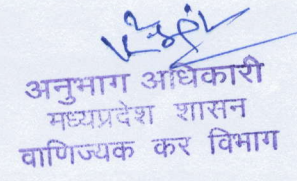 अनुभाग अधिकारी
मध्यप्रदेश शासन
वाणिज्यक कर विभाग